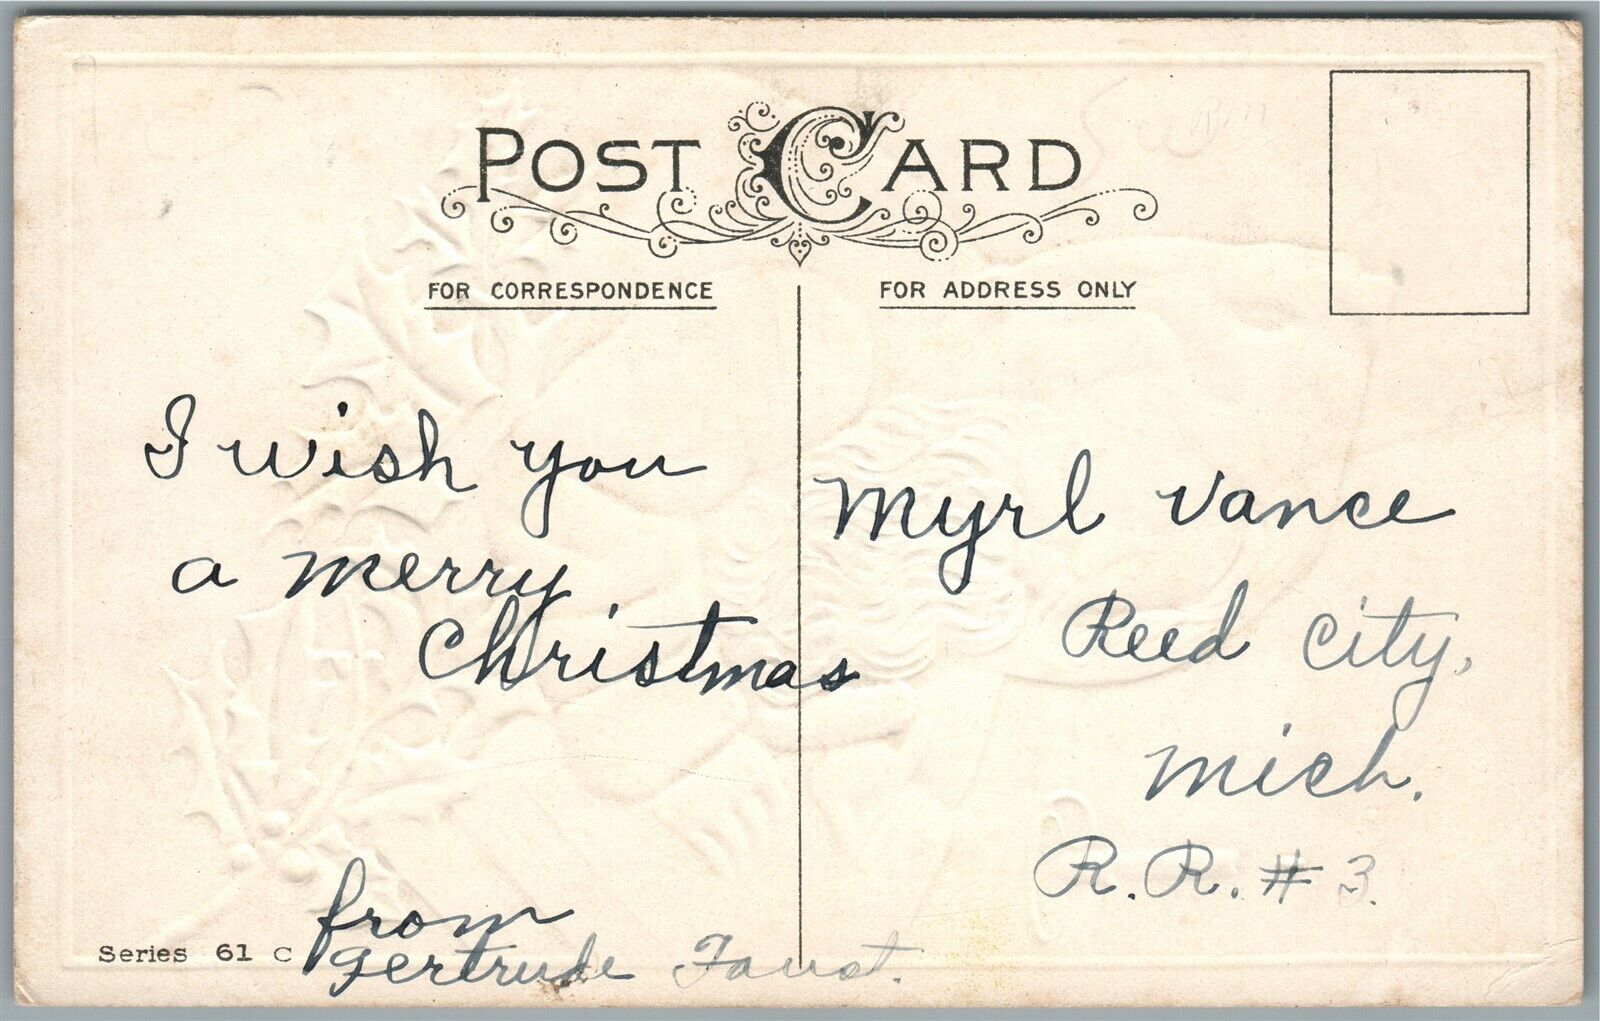 POST CARD
FOR CORRESPONDENCE
FOR ADDRESS ONLY
I wish you
a merry
Christmas
from
Gertrude Faust.
Series 61 C
Myrl Vance
Reed City,
Mich.
R.R. # 3.